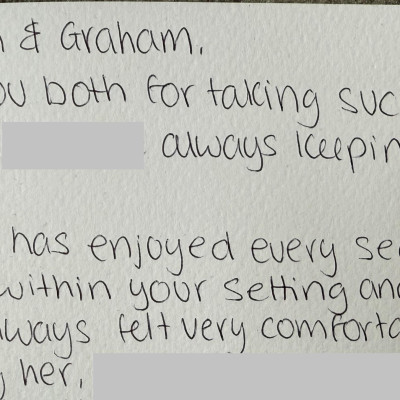 & Graham.
both for taking suc
always keepin
has enjoyed every se
within your setting an
ways felt very comforta
her,